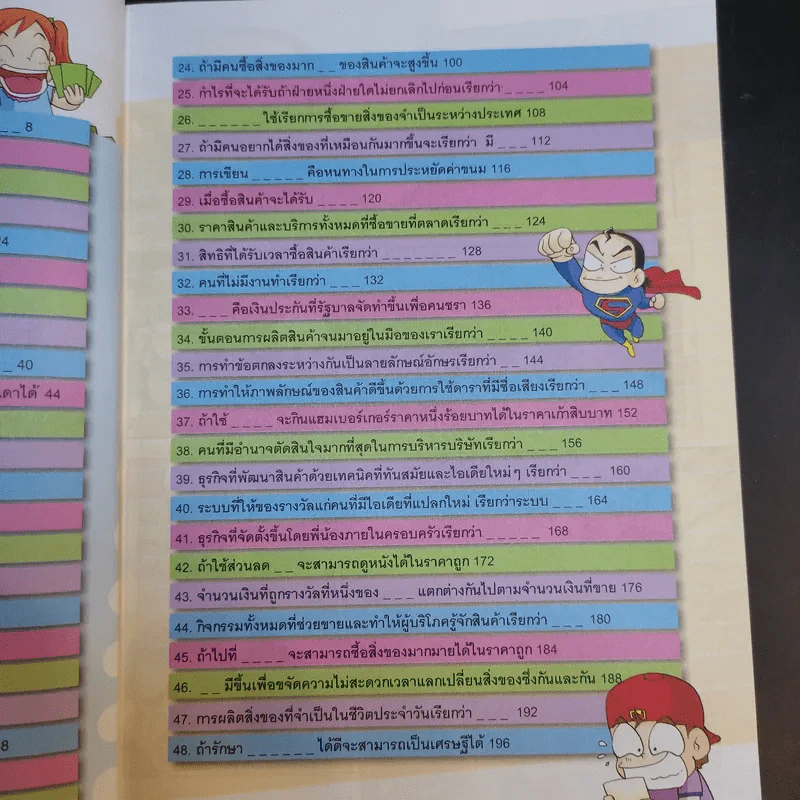 _ _ 8
24
_ 40
เดาได้ 44
8
24. ถ้ามีคนซื้อสิ่งของมาก _ _ ของสินค้าจะสูงขึ้น 100
25. กำไรที่จะได้รับถ้าฝ่ายหนึ่งฝ่ายใดไม่ยกเลิกไปก่อนเรียกว่า _ _ _ _ 104
26. _ _ _ _ _ _ ใช้เรียกการซื้อขายสิ่งของจำเป็นระหว่างประเทศ 108
27. ถ้ามีคนอยากได้สิ่งของที่เหมือนกันมากขึ้นจะเรียกว่า มี _ _ _ 112
28. การเขียน _ _ _ _ _ คือหนทางในการประหยัดค่าขนม 116
29. เมื่อซื้อสินค้าจะได้รับ _ _ _ _ 120
30. ราคาสินค้าและบริการทั้งหมดที่ซื้อขายที่ตลาดเรียกว่า _ _ _ 124
31. สิทธิที่ได้รับเวลาซื้อสินค้าเรียกว่า _ _ _ _ _ _ _ 128
32. คนที่ไม่มีงานทำเรียกว่า _ _ _ 132
33. _ _ _ คือเงินประกันที่รัฐบาลจัดทำขึ้นเพื่อคนชรา 136
34. ขั้นตอนการผลิตสินค้าจนมาอยู่ในมือของเราเรียกว่า _ _ _ _ 140
35. การทำข้อตกลงระหว่างกันเป็นลายลักษณ์อักษรเรียกว่า _ _ 144
36. การทำให้ภาพลักษณ์ของสินค้าดีขึ้นด้วยการใช้ดาราที่มีชื่อเสียงเรียกว่า _ _ _ 148
37. ถ้าใช้ _ _ _ _ จะกินแฮมเบอร์เกอร์ราคาหนึ่งร้อยบาทได้ในราคาเก้าสิบบาท 152
38. คนที่มีอำนาจตัดสินใจมากที่สุดในการบริหารบริษัทเรียกว่า _ _ _ 156
39. ธุรกิจที่พัฒนาสินค้าด้วยเทคนิคที่ทันสมัยและไอเดียใหม่ๆ เรียกว่า _ _ _ 160
40. ระบบที่ให้ของรางวัลแก่คนที่มีไอเดียที่แปลกใหม่ เรียกว่าระบบ _ _ _ 164
41. ธุรกิจที่จัดตั้งขึ้นโดยพี่น้องภายในครอบครัวเรียกว่า _ _ _ _ _ 168
42. ถ้าใช้ส่วนลด _ _ จะสามารถดูหนังได้ในราคาถูก 172
43. จำนวนเงินที่ถูกรางวัลที่หนึ่งของ _ _ _ แตกต่างกันไปตามจำนวนเงินที่ขาย 176
44. กิจกรรมทั้งหมดที่ช่วยขายและทำให้ผู้บริโภครู้จักสินค้าเรียกว่า _ _ _ 180
45. ถ้าไปที่ _ _ _ _ จะสามารถซื้อสิ่งของมากมายได้ในราคาถูก 184
46. _ _ มีขึ้นเพื่อขจัดความไม่สะดวกเวลาแลกเปลี่ยนสิ่งของซึ่งกันและกัน 188
47. การผลิตสิ่งของที่จำเป็นในชีวิตประจำวันเรียกว่า _ _ _ 192
48. ถ้ารักษา _ _ _ _ _ _ ได้ดีจะสามารถเป็นเศรษฐีได้ 196